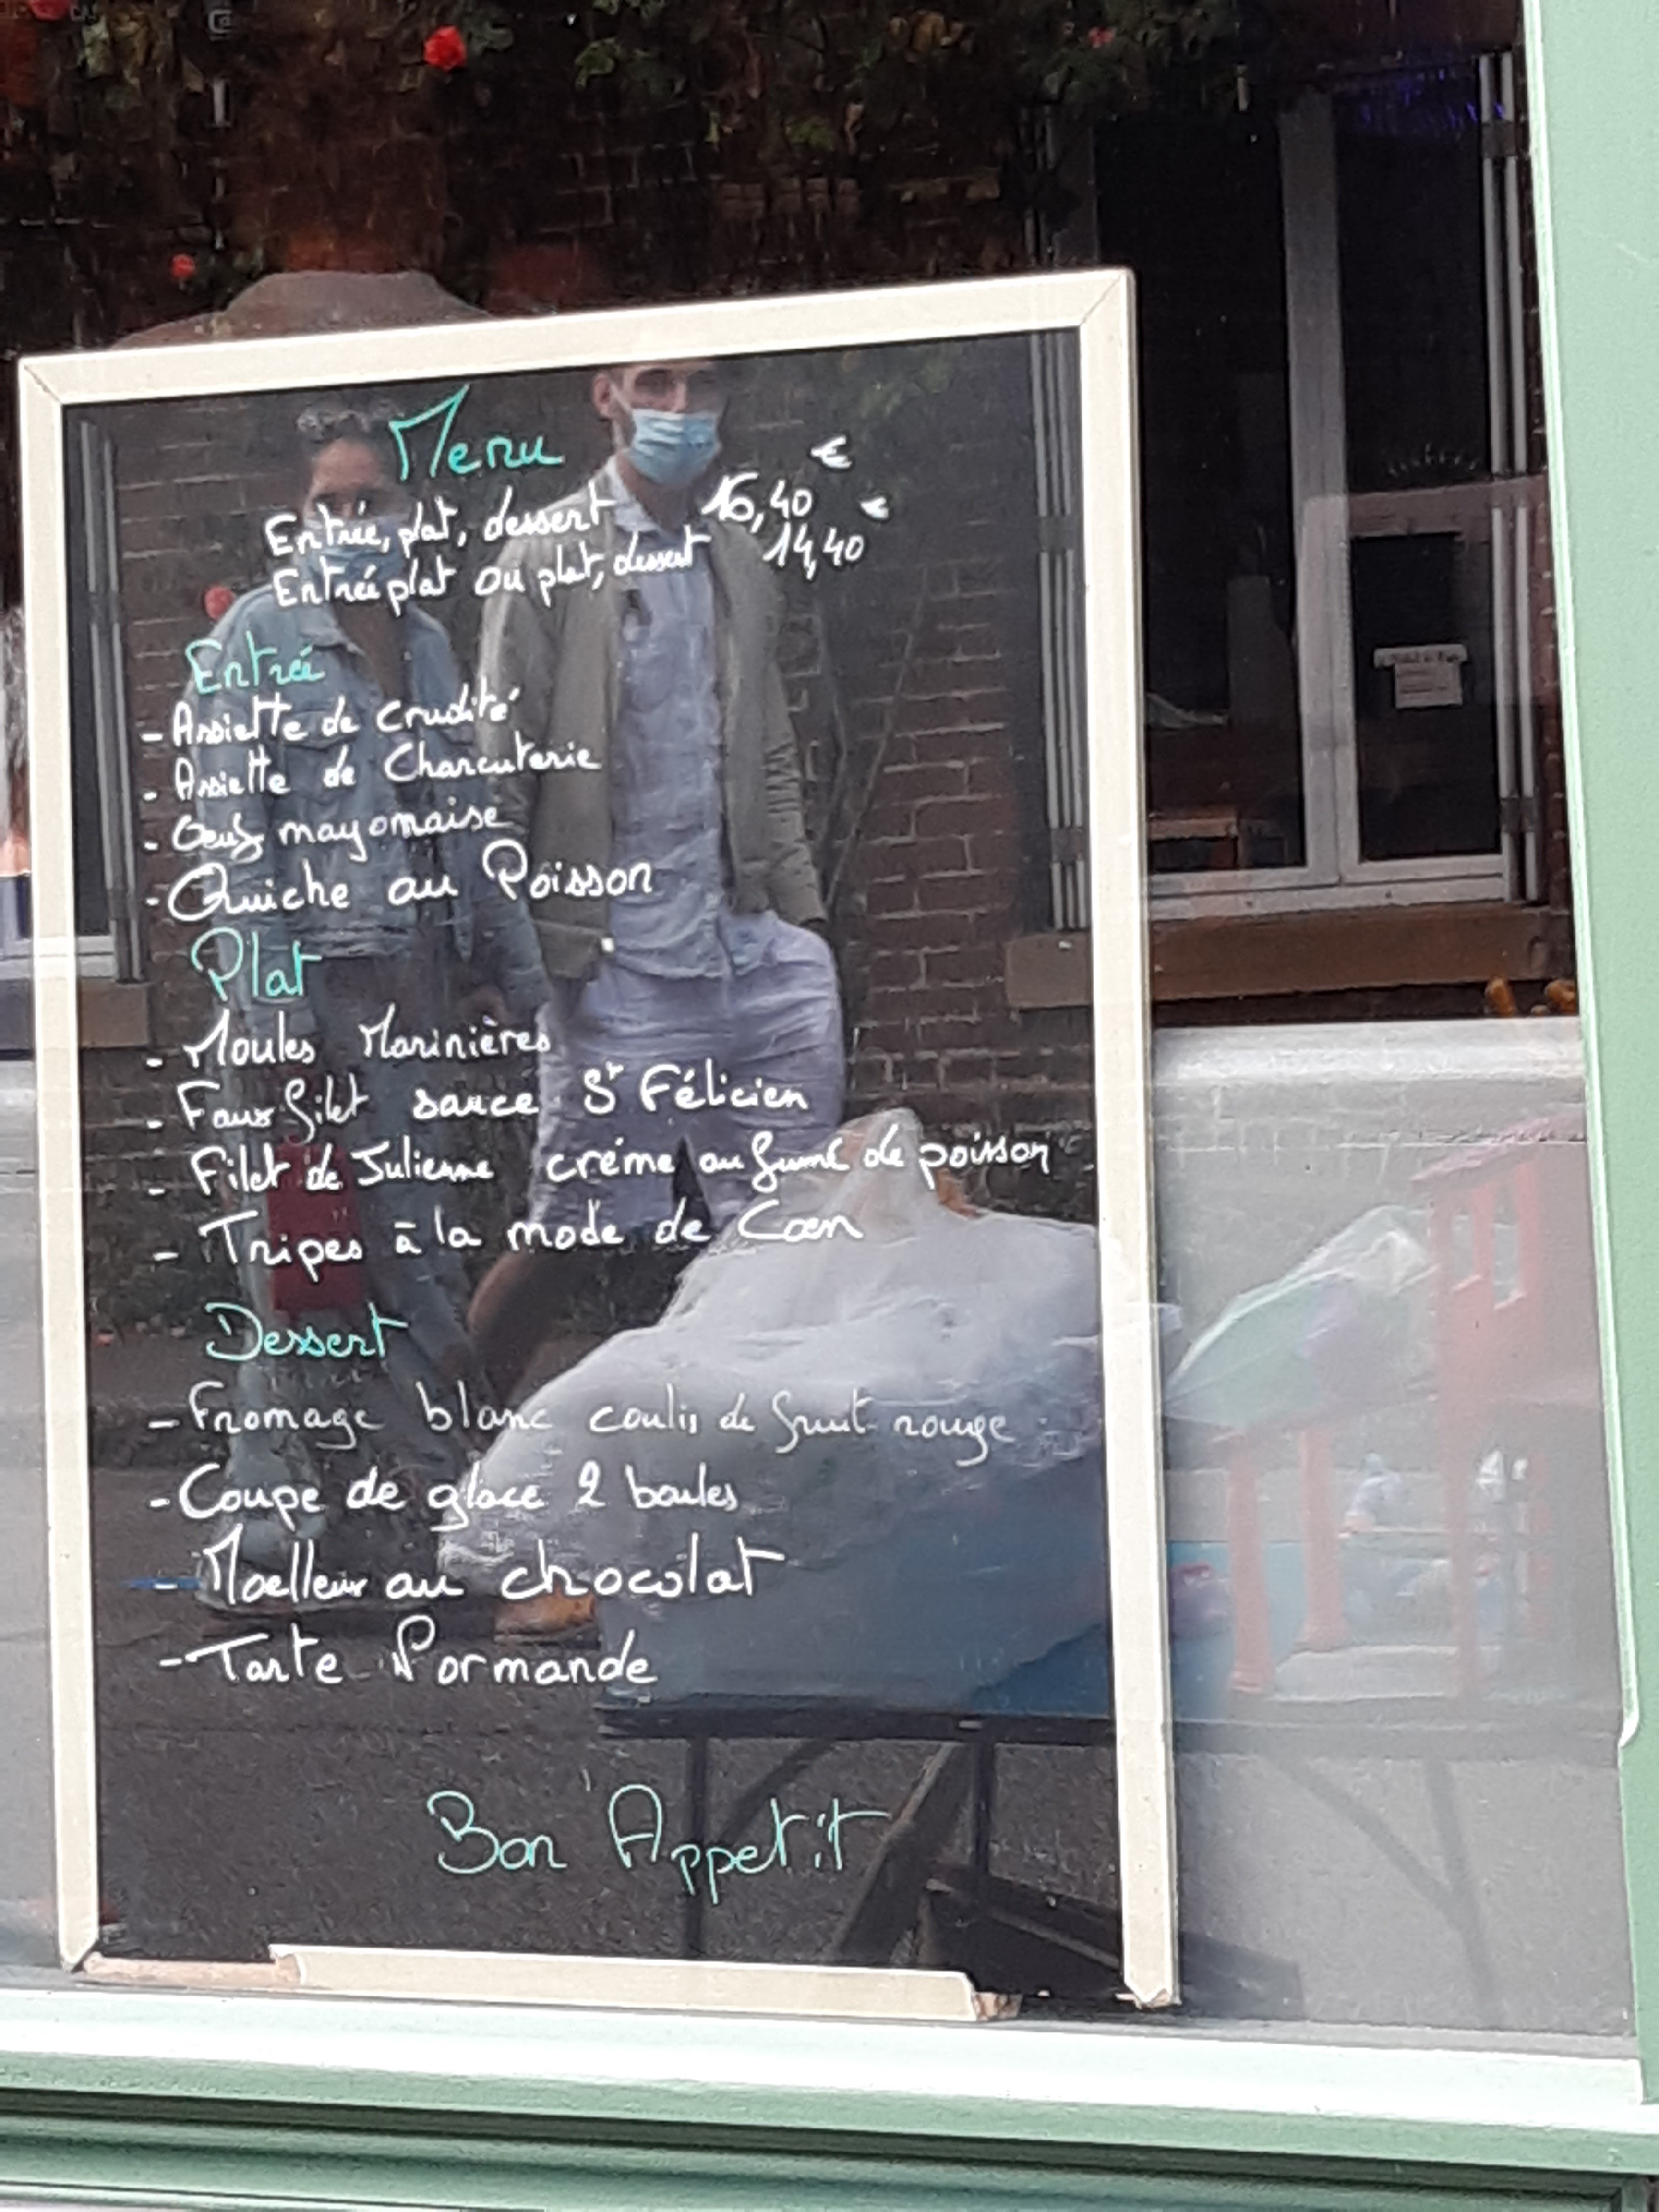 Menu
Entrée, plat, dessert 16,40 €
Entrée plat ou plat, dessert 14,40 €
Entrée
- Assiette de crudité
- Assiette de Charcuterie
- Oeuf mayomaise
- Quiche au Poisson
Plat
- Moules Marinières
- Faux filet sauce St Félicien
- Filet de Julienne créme au fumé de poisson
- Tripes à la mode de Caen
Dessert
- Fromage blanc coulis de fruit rouge
- Coupe de glace 2 boules
- Moelleux au chocolat
- Tarte Normande
Bon Appetit